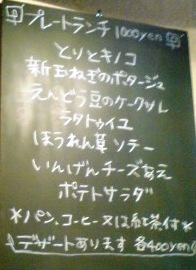 プレートランチ 1000yen
とりとキノコ
新玉ねぎのポタージュ
えんどう豆のケークサレ
ラタトゥイユ
ほうれん草 ソテー
いんげんチーズあえ
ポテトサラダ
*パン、コーヒー又は紅茶付*
デザートあります 各400yen